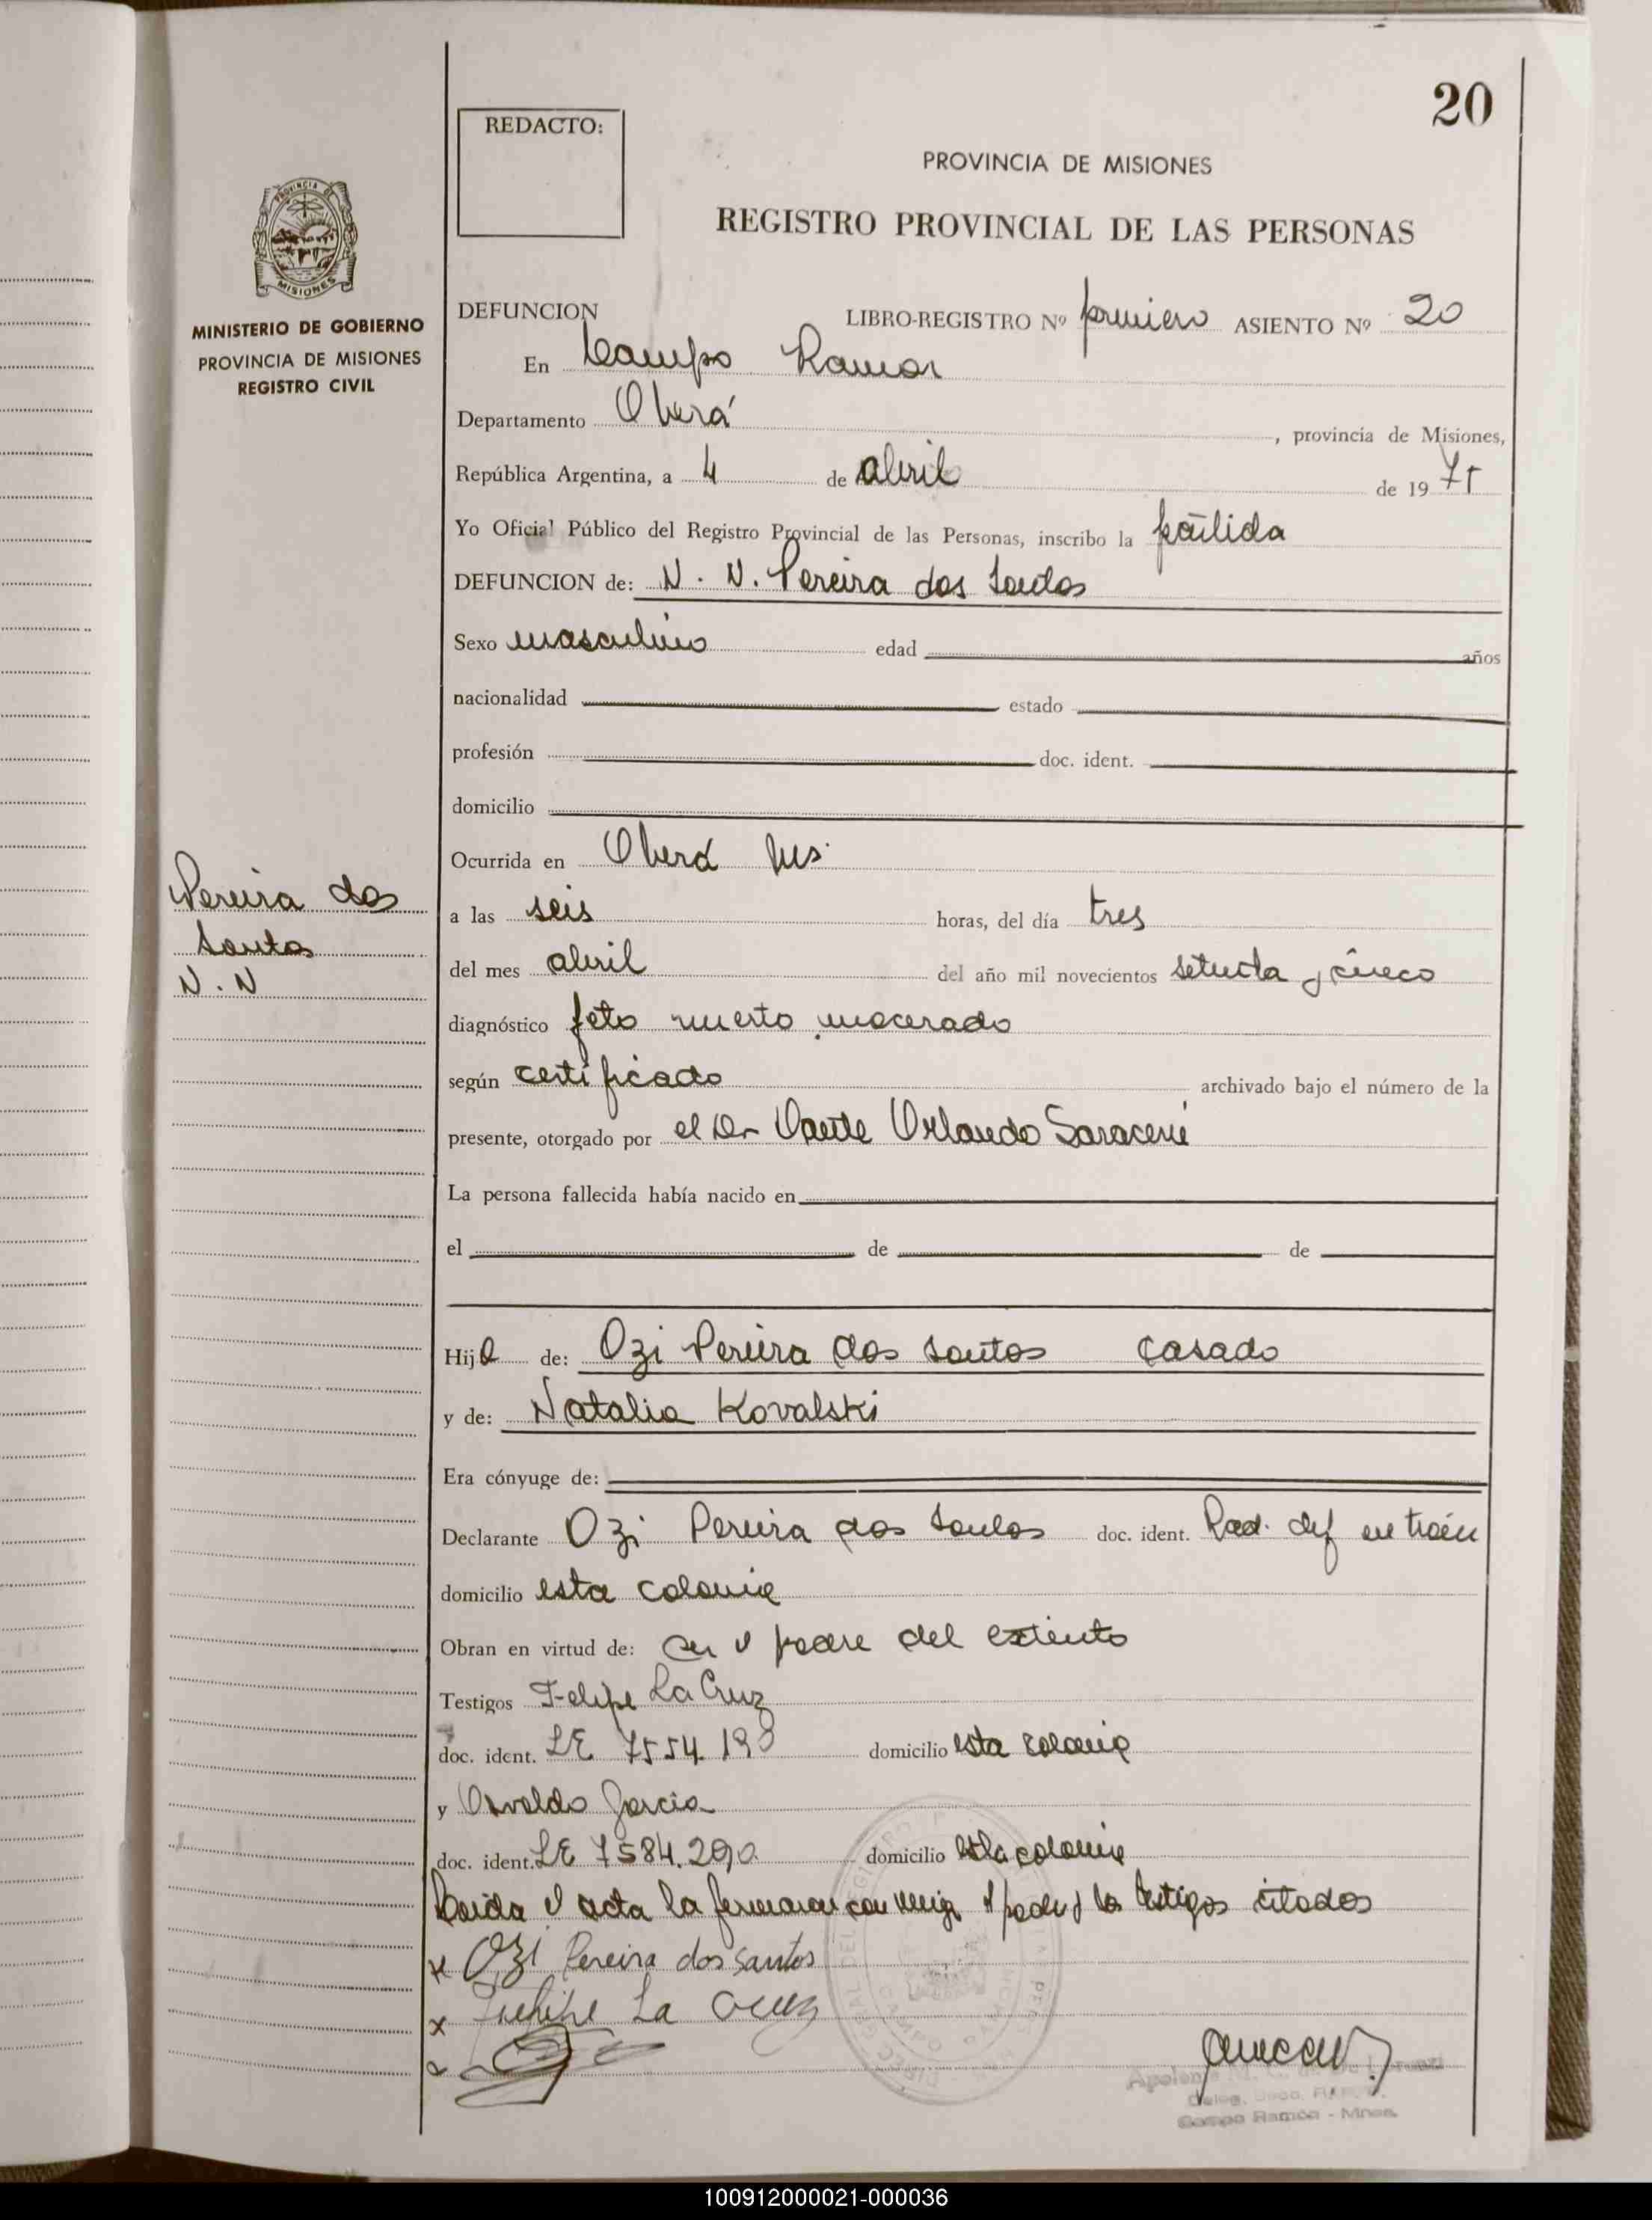 20
REDACTO:
PROVINCIA DE MISIONES
REGISTRO PROVINCIAL DE LAS PERSONAS
MINISTERIO DE GOBIERNO
PROVINCIA DE MISIONES
REGISTRO CIVIL
DEFUNCION LIBRO-REGISTRO Nº primero ASIENTO Nº 20
En Campo Ramon
Departamento Oberá, provincia de Misiones,
República Argentina, a 4 de abril de 1975
Yo Oficial Público del Registro Provincial de las Personas, inscribo la
DEFUNCION de: N. N. Pereira dos Santos
Sexo masculino edad años
nacionalidad estado
profesión doc. ident.
domicilio
Ocurrida en Oberá Mns.
Pereira dos
Santos
N. N
a las seis horas, del día tres
del mes abril del año mil novecientos setenta y cinco
diagnóstico feto muerto macerado
según certificado archivado bajo el número de la
presente, otorgado por el Dr Dante Orlando Saraceni
La persona fallecida había nacido en
el de de
Hijo de: Ozi Pereira dos Santos casado
y de: Natalia Kovalski
Era cónyuge de:
Declarante Ozi Pereira dos Santos doc. ident. Rad. def en trám
domicilio esta colonia
Obran en virtud de: ser el padre del extinto
Testigos Felipe La Cruz
doc. ident. LE 7554.198 domicilio esta colonia
y Osvaldo Garcia
doc. ident. LE 7584.290 domicilio esta colonia
Leida el acta la firmaron con migo el padre y los testigos citados
x Ozi Pereira dos Santos
x Felipe La Cruz
Campo Ramón - Mnes.
100912000021-000036